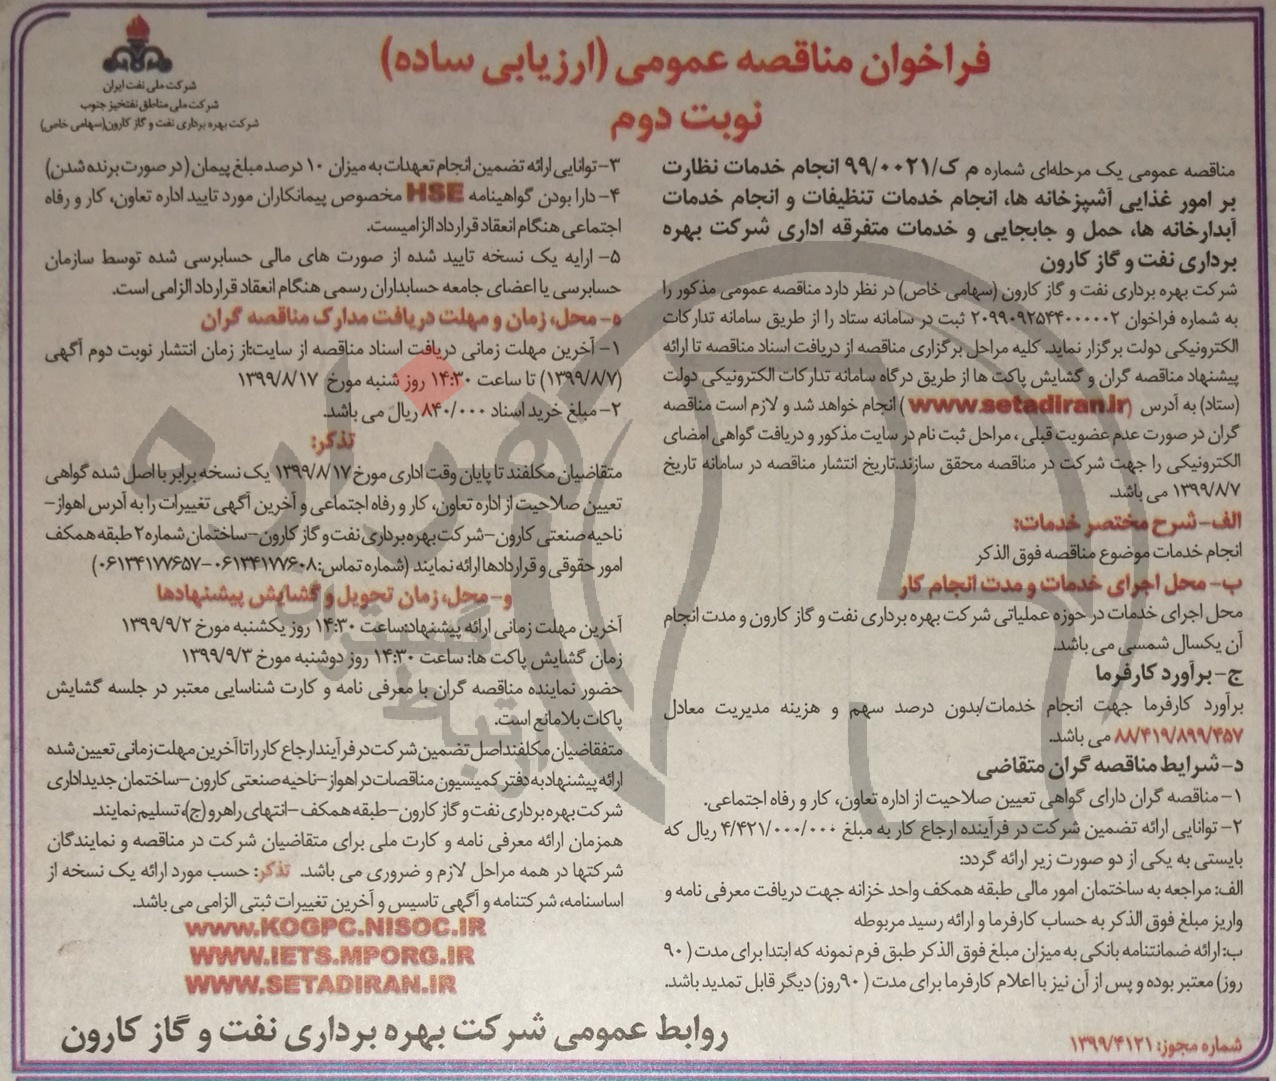 شرکت ملی نفت ایران
شرکت ملی مناطق نفتخیز جنوب
شرکت بهره برداری نفت و گاز کارون(سهامی خاص)
فراخوان مناقصه عمومی (ارزیابی ساده)
نوبت دوم
مناقصه عمومی یک مرحله‌ای شماره م ک/۹۹/۰۰۲۱ انجام خدمات نظارت
بر امور غذایی آشپزخانه ها، انجام خدمات تنظیفات و انجام خدمات
آبدارخانه ها، حمل و جابجایی و خدمات متفرقه اداری شرکت بهره
برداری نفت و گاز کارون
شرکت بهره برداری نفت و گاز کارون (سهامی خاص) در نظر دارد مناقصه عمومی مذکور را
به شماره فراخوان ۲۰۹۹۰۹۲۵۴۴۰۰۰۰۰۲ ثبت در سامانه ستاد را از طریق سامانه تدارکات
الکترونیکی دولت برگزار نماید. کلیه مراحل برگزاری مناقصه از دریافت اسناد مناقصه تا ارائه
پیشنهاد مناقصه گران و گشایش پاکت ها از طریق درگاه سامانه تدارکات الکترونیکی دولت
(ستاد) به آدرس (www.setadiran.ir) انجام خواهد شد و لازم است مناقصه
گران در صورت عدم عضویت قبلی ، مراحل ثبت نام در سایت مذکور و دریافت گواهی امضای
الکترونیکی را جهت شرکت در مناقصه محقق سازند.تاریخ انتشار مناقصه در سامانه تاریخ
۱۳۹۹/۸/۷ می باشد.
الف- شرح مختصر خدمات:
انجام خدمات موضوع مناقصه فوق الذکر
ب- محل اجرای خدمات و مدت انجام کار
محل اجرای خدمات در حوزه عملیاتی شرکت بهره برداری نفت و گاز کارون و مدت انجام
آن یکسال شمسی می باشد.
ج- برآورد کارفرما
برآورد کارفرما جهت انجام خدمات/بدون درصد سهم و هزینه مدیریت معادل
۸۸/۴۱۹/۸۹۹/۴۵۷ می باشد.
د- شرایط مناقصه گران متقاضی
۱- مناقصه گران دارای گواهی تعیین صلاحیت از اداره تعاون، کار و رفاه اجتماعی.
۲- توانایی ارائه تضمین شرکت در فرآینده ارجاع کار به مبلغ ۴/۴۲۱/۰۰۰/۰۰۰ ریال که
بایستی به یکی از دو صورت زیر ارائه گردد:
الف: مراجعه به ساختمان امور مالی طبقه همکف واحد خزانه جهت دریافت معرفی نامه و
واریز مبلغ فوق الذکر به حساب کارفرما و ارائه رسید مربوطه
ب: ارائه ضمانتنامه بانکی به میزان مبلغ فوق الذکر طبق فرم نمونه که ابتدا برای مدت ( ۹۰
روز) معتبر بوده و پس از آن نیز با اعلام کارفرما برای مدت ( ۹۰روز) دیگر قابل تمدید باشد.
۳- توانایی ارائه تضمین انجام تعهدات به میزان ۱۰ درصد مبلغ پیمان (در صورت برنده شدن)
۴- دارا بودن گواهینامه HSE مخصوص پیمانکاران مورد تایید اداره تعاون، کار و رفاه
اجتماعی هنگام انعقاد قرارداد الزامیست.
۵- ارایه یک نسخه تایید شده از صورت های مالی حسابرسی شده توسط سازمان
حسابرسی یا اعضای جامعه حسابداران رسمی هنگام انعقاد قرارداد الزامی است.
ه- محل، زمان و مهلت دریافت مدارک مناقصه گران
۱- آخرین مهلت زمانی دریافت اسناد مناقصه از سایت:از زمان انتشار نوبت دوم آگهی
(۱۳۹۹/۸/۷) تا ساعت ۱۴:۳۰ روز شنبه مورخ ۱۳۹۹/۸/۱۷
۲- مبلغ خرید اسناد ۸۴۰/۰۰۰ ریال می باشد.
تذکر:
متقاضیان مکلفند تا پایان وقت اداری مورخ ۱۳۹۹/۸/۱۷ یک نسخه برابر با اصل شده گواهی
تعیین صلاحیت از اداره تعاون، کار و رفاه اجتماعی و آخرین آگهی تغییرات را به آدرس اهواز-
ناحیه صنعتی کارون-شرکت بهره برداری نفت و گاز کارون-ساختمان شماره ۲ طبقه همکف
امور حقوقی و قراردادها ارائه نمایند (شماره تماس:۰۶۱۳۴۱۷۷۶۰۸-۰۶۱۳۴۱۷۷۶۵۷)
و- محل، زمان تحویل و گشایش پیشنهادها
آخرین مهلت زمانی ارائه پیشنهاد:ساعت ۱۴:۳۰ روز یکشنبه مورخ ۱۳۹۹/۹/۲
زمان گشایش پاکت ها: ساعت ۱۴:۳۰ روز دوشنبه مورخ ۱۳۹۹/۹/۳
حضور نماینده مناقصه گران با معرفی نامه و کارت شناسایی معتبر در جلسه گشایش
پاکات بلامانع است.
متفقاضیان مکلفند اصل تضمین شرکت در فرآیند ارجاع کار را تا آخرین مهلت زمانی تعیین شده
ارائه پیشنهاد به دفتر کمیسیون مناقصات در اهواز-ناحیه صنعتی کارون-ساختمان جدید اداری
شرکت بهره برداری نفت و گاز کارون-طبقه همکف-انتهای راهرو (ج)، تسلیم نمایند.
همزمان ارائه معرفی نامه و کارت ملی برای متقاضیان شرکت در مناقصه و نمایندگان
شرکتها در همه مراحل لازم و ضروری می باشد. تذکر: حسب مورد ارائه یک نسخه از
اساسنامه، شرکتنامه و آگهی تاسیس و آخرین تغییرات ثبتی الزامی می باشد.
WWW.KOGPC.NISOC.IR
WWW.IETS.MPORG.IR
WWW.SETADIRAN.IR
شماره مجوز: ۱۳۹۹/۴۱۲۱
روابط عمومی شرکت بهره برداری نفت و گاز کارون